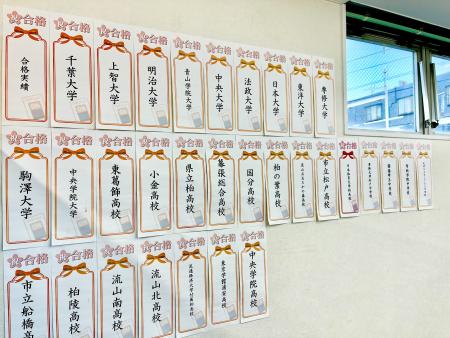 合格
合格実績
合格
千葉大学
合格
上智大学
合格
明治大学
合格
青山学院大学
合格
中央大学
合格
法政大学
合格
日本大学
合格
東洋大学
合格
専修大学
合格
駒澤大学
合格
中央学院大学
合格
東葛飾高校
合格
小金高校
合格
県立柏高校
合格
幕張総合高校
合格
国分高校
合格
柏の葉高校
合格
合格
市立松戸高校
合格
合格
合格
合格
合格
合格
市立船橋高校
合格
柏陵高校
合格
流山南高校
合格
流山北高校
合格
流通経済大学付属柏高校
合格
東京学館浦安高校
合格
中央学院高校